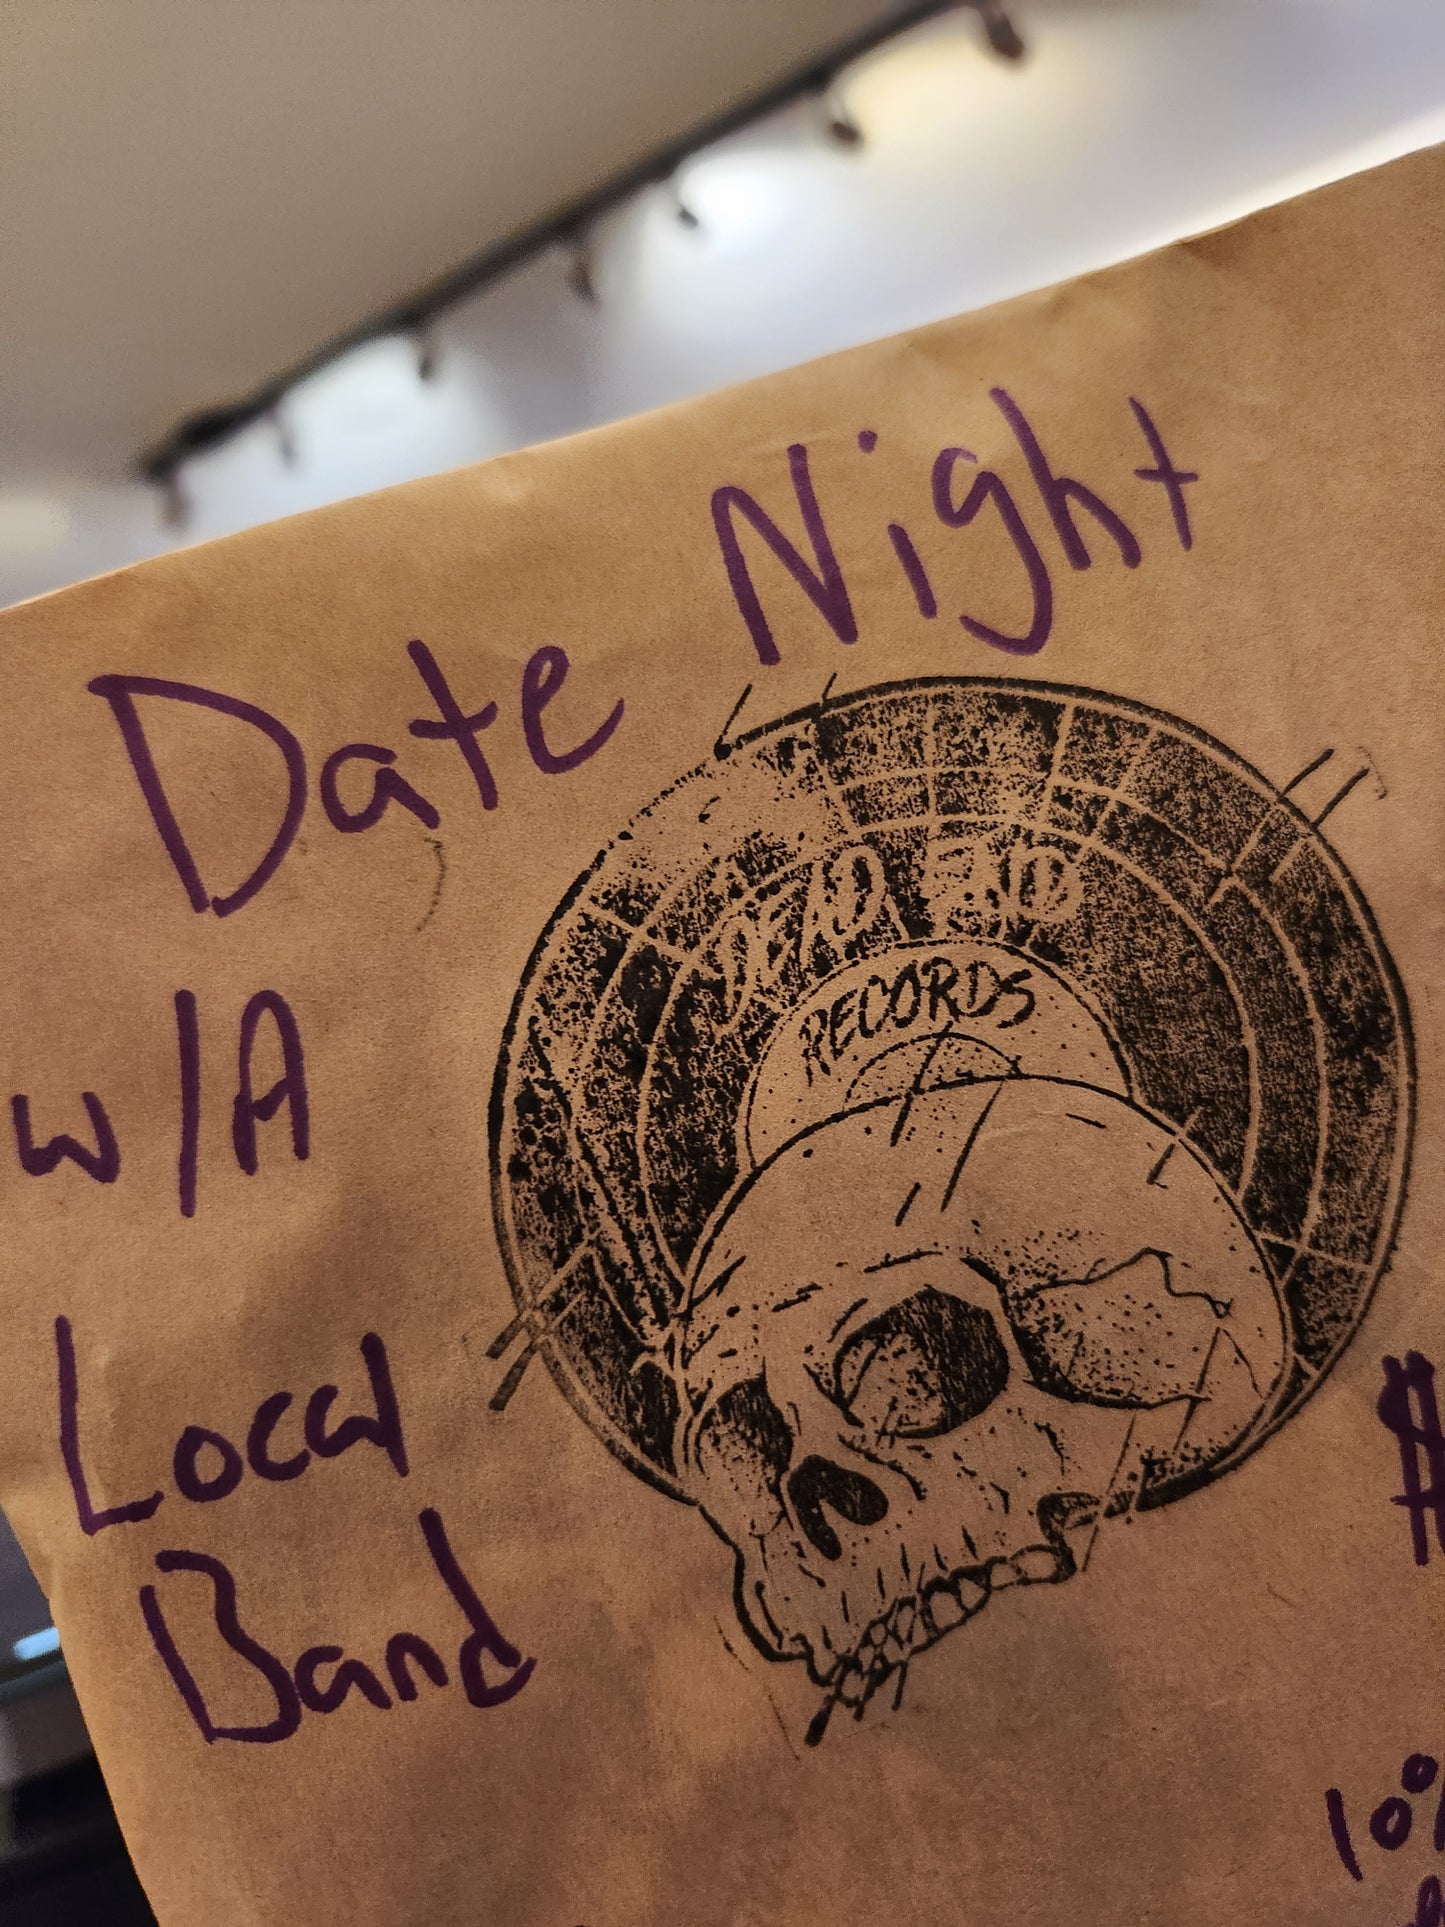 Date Night
w/A
Local
Band
DEAD END
RECORDS
$
10%